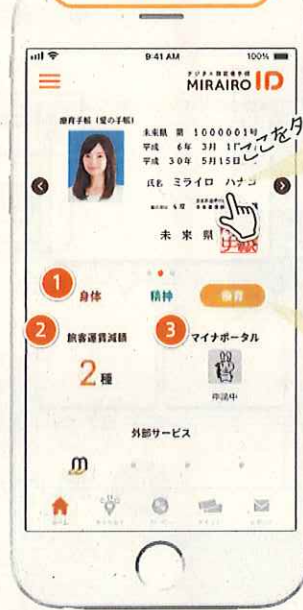 9:41 AM
100%
デジタル障害者手帳
MIRAIRO ID
療育手帳 (愛の手帳)
未来県 第 1000001号
平成 6年 3月
平成 30年 5月15日
ここをタ
氏名 ミライロ ハナコ
未来県
1
身体
精神
療育
2
旅客運賃減額
3
マイナポータル
2種
申請中
外部サービス
m